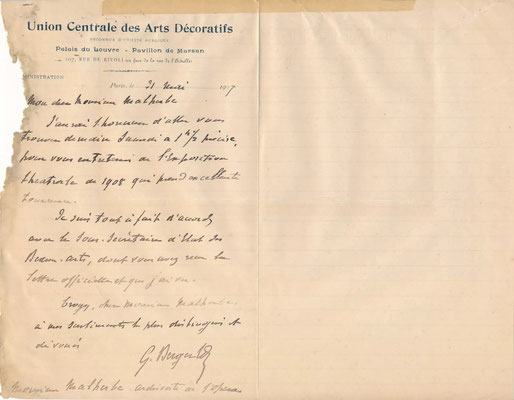 Union Centrale des Arts Décoratifs
RECONNUE D'UTILITÉ PUBLIQUE
Palais du Louvre - Pavillon de Marsan
107, RUE DE RIVOLI en face de la rue de l'Échelle
MINISTRATION
Paris, le 31 mai 1907
Mon cher Monsieur Malherbe
J'aurai l'honneur d'aller vous
trouver Samedi à 1 h 1/2 précise,
pour vous entretenir de l'Exposition
théatrale de 1908 qui prend
tournure.
Je suis tout à fait d'accord
avec le Sous-Secrétaire d'Etat des
Beaux-Arts, dont vous avez reçu la
lettre officielle que j'ai vu.
Croyez, cher Monsieur Malherbe,
à mes sentiments les plus distingués et
dévoués
G. Berger
Monsieur Malherbe archiviste de l'opéra